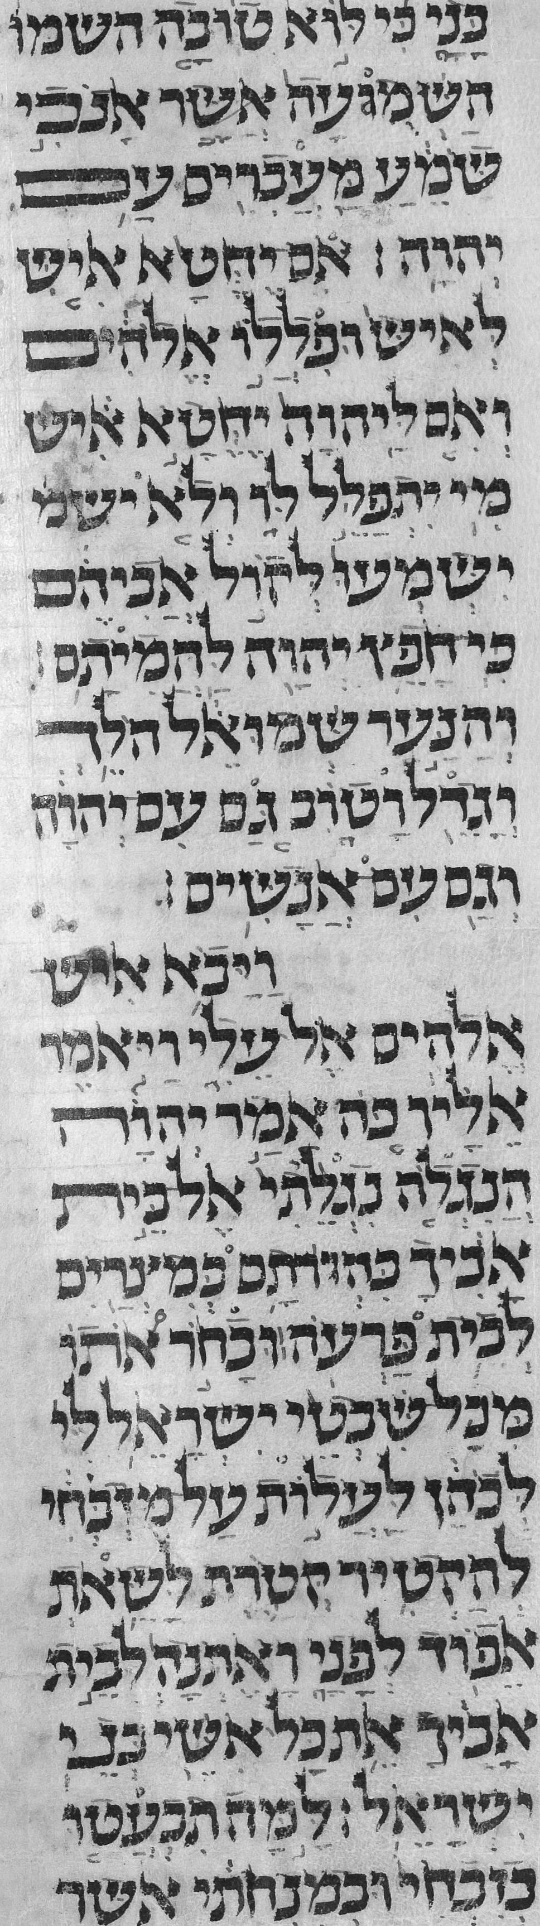 בני כי לוא טובה השמו
השמועה אשר אנכי
שמע מעברים עם
יהוה׃ אם יחטא איש
לאיש ופללו אלהים
ואם ליהוה יחטא איש
מי יתפלל לו ולא ישמ
ישמעו לקול אביהם
כי חפץ יהוה להמיתם׃
והנער שמואל הלך
וגדל וטוב גם עם יהוה
וגם עם אנשים׃
ויבא איש
אלהים אל עלי ויאמר
אליו כה אמר יהוה
הנגלה נגלתי אל בית
אביך בהיותם במצרים
לבית פרעה׃ ובחר אתו
מכל שבטי ישראל לי
לכהן לעלות על מזבחי
להקטיר קטרת לשאת
אפוד לפני ואתנה לבית
אביך את כל אשי בני
ישראל׃ למה תבעטו
בזבחי ובמנחתי אשר